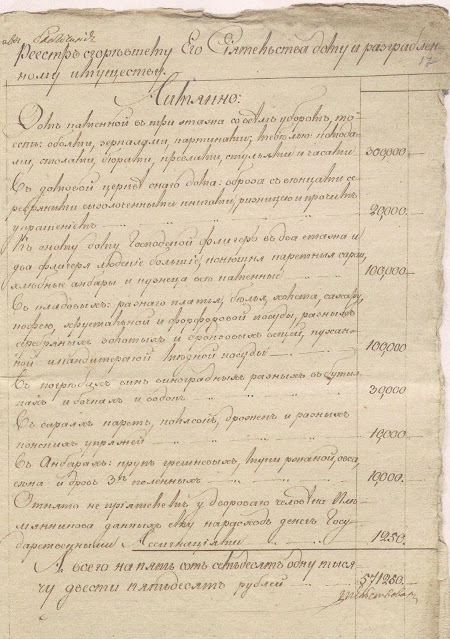 Реестръ сгорѣвшему Его Сіятельства дому и разграблен-
17
ному имуществу.
Имянно:
Домъ каменной въ три этажа со всѣмъ уборомъ, то
есть: обоями, зеркалами, картинами, мебелью: комода-
ми, столами, бюрами, креслами, стульями и часами 300,000.
Въ домовой церквѣ онаго дома: образа съ вѣнцами се
ребряными вызолоченными ризницею и прочимъ
украшениемъ 20,000.
Къ оному дому Господской флигель въ два этажа и
два флигеля людские большие, конюшня каретныя сараи,
хлѣбные анбары и кузница все каменные 100,000.
Въ кладовыхъ: разнаго платья, бѣлья, холста, сахару,
кофею, хрустальной и форфоровой посуды, разныхъ
серебряныхъ и бронзовыхъ вещей, кухон-
ной и кандитерской медной посуды 100,000
Въ погребахъ винъ виноградныхъ разныхъ въ бутыл-
кахъ и бочкахъ и водокъ 30,000
Въ сараяхъ каретъ, колясокъ, дрожекъ и разныхъ
конскихъ упряжей 10,000.
Въ Анбарахъ: крупъ грешневыхъ, муки ржаной, овса,
сена и дровъ 3хъ поленныхъ 10,000.
Отнято неприятелемъ у дворового человека
данныхъ ему на расходъ денегъ Госу-
дарственными Ассигнациями 1250.
А всего на пять сотъ семьдесятъ одну тыся
чу двести пятьдесятъ рублей 571250.